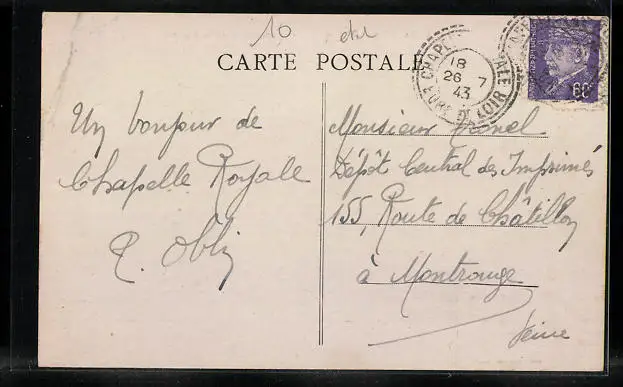 10
CARTE POSTALE
CHAPEL
YALE
EURE ET LOIR
18
26 7
43
80c
Un bonjour de
Chapelle Royale
Monsieur
Dépôt Central des Imprimés
155, Route de Châtillon
à Montrouge
Seine